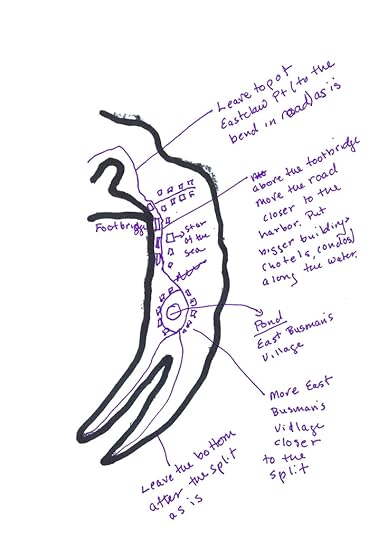 Leave top of
Eastclaw Pt (to the
bend in road) as is
above the footbridge
move the road
closer to the
harbor. Put
bigger buildings
(hotels, condos)
along the water.
Footbridge
Star
of the
Sea
Pond
East Busman's
Village
More East
Busman's
Village
closer
to the
split
Leave the bottom
after the split
as is